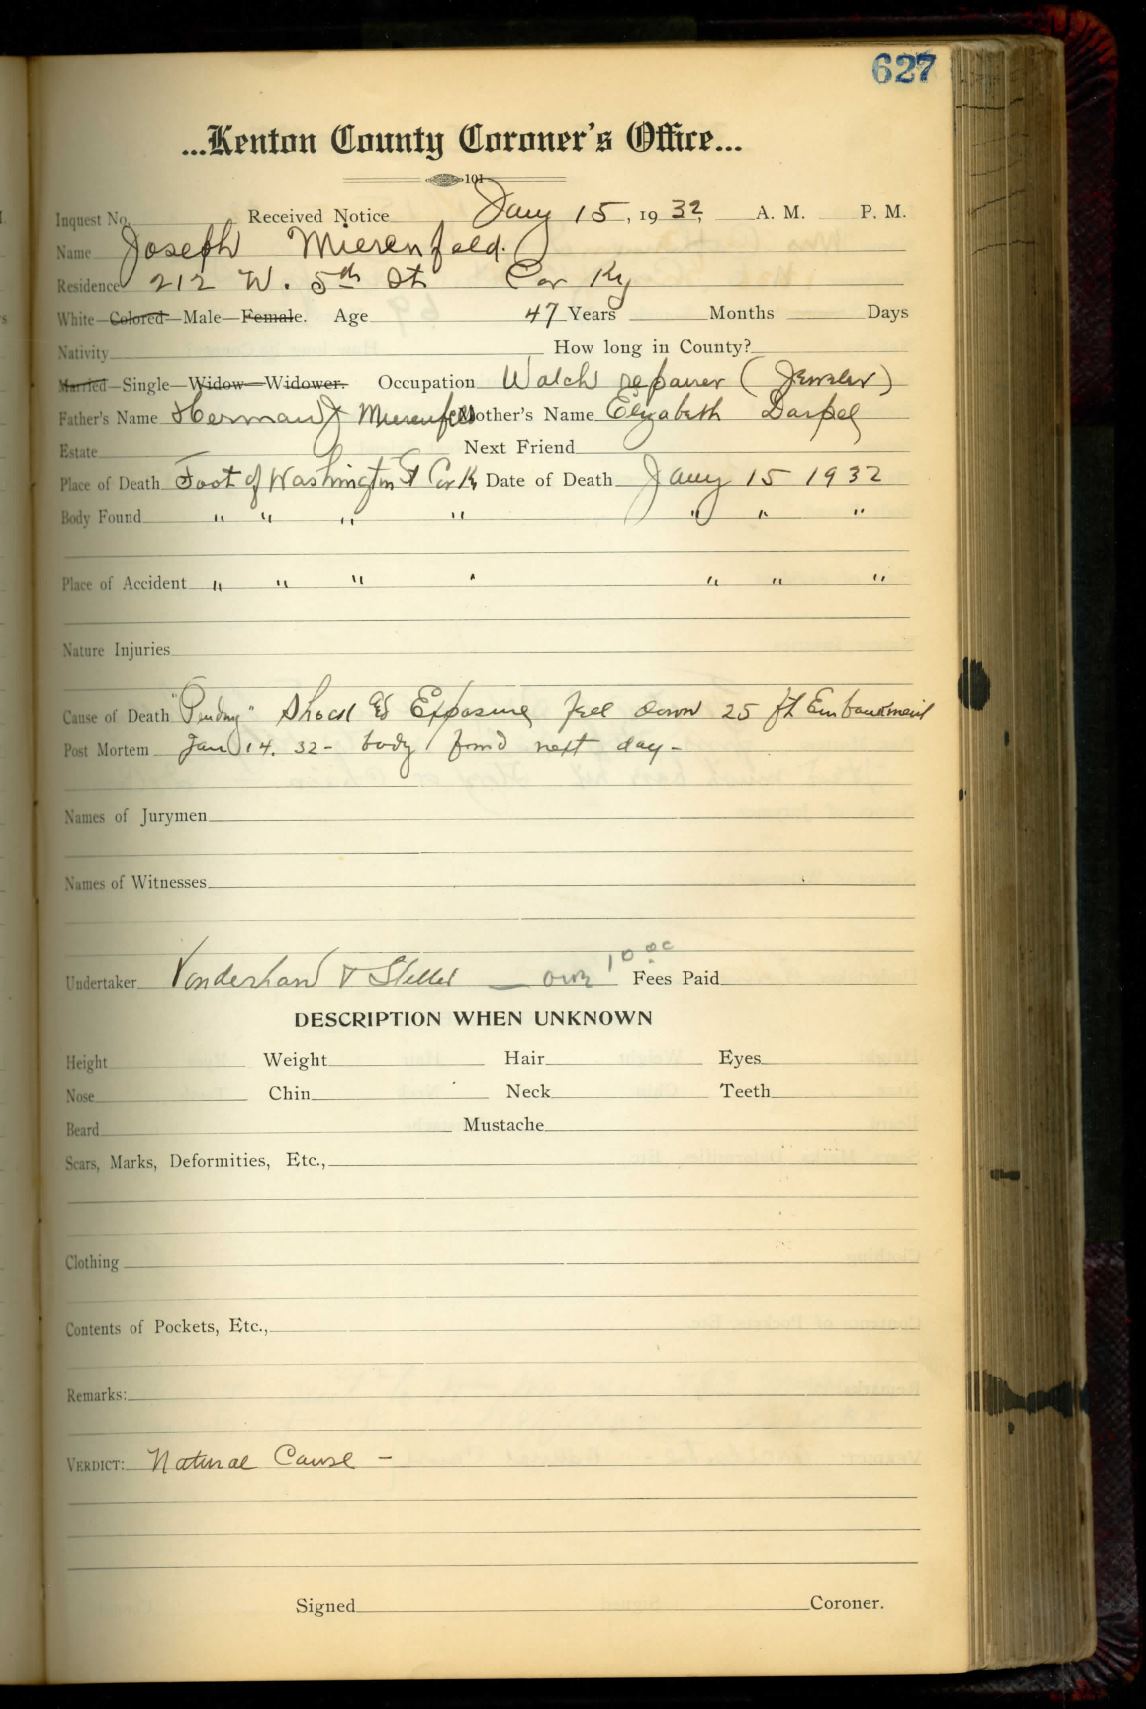 627
...Kenton County Coroner's Office...
101
Inquest No. Received Notice Jany 15, 1932, A. M. P. M.
Name Joseph Mierenfeld.
Residence 212 W. 5th St Cov Ky
White—Colored—Male—Female. Age 47 Years Months Days
Nativity How long in County?
Married—Single—Widow—Widower. Occupation Watch repairer (Jewsler)
Father's Name Herman J Mierenfeld Mother's Name Elizabeth Darpel
Estate Next Friend
Place of Death Foot of Washington St Cov Ky Date of Death Jany 15 1932
Body Found " " " " " " "
Place of Accident " " " " " " "
Nature Injuries
Cause of Death "Pending" Shock & Exposure fell down 25 ft Embankment
Post Mortem Jan 14. 32- body found next day-
Names of Jurymen
Names of Witnesses
Undertaker Vonderhaar & Stetter — own 10 00 Fees Paid
DESCRIPTION WHEN UNKNOWN
Height Weight Hair Eyes
Nose Chin Neck Teeth
Beard Mustache
Scars, Marks, Deformities, Etc.,
Clothing
Contents of Pockets, Etc.,
Remarks:
VERDICT: Natural Cause -
Signed Coroner.